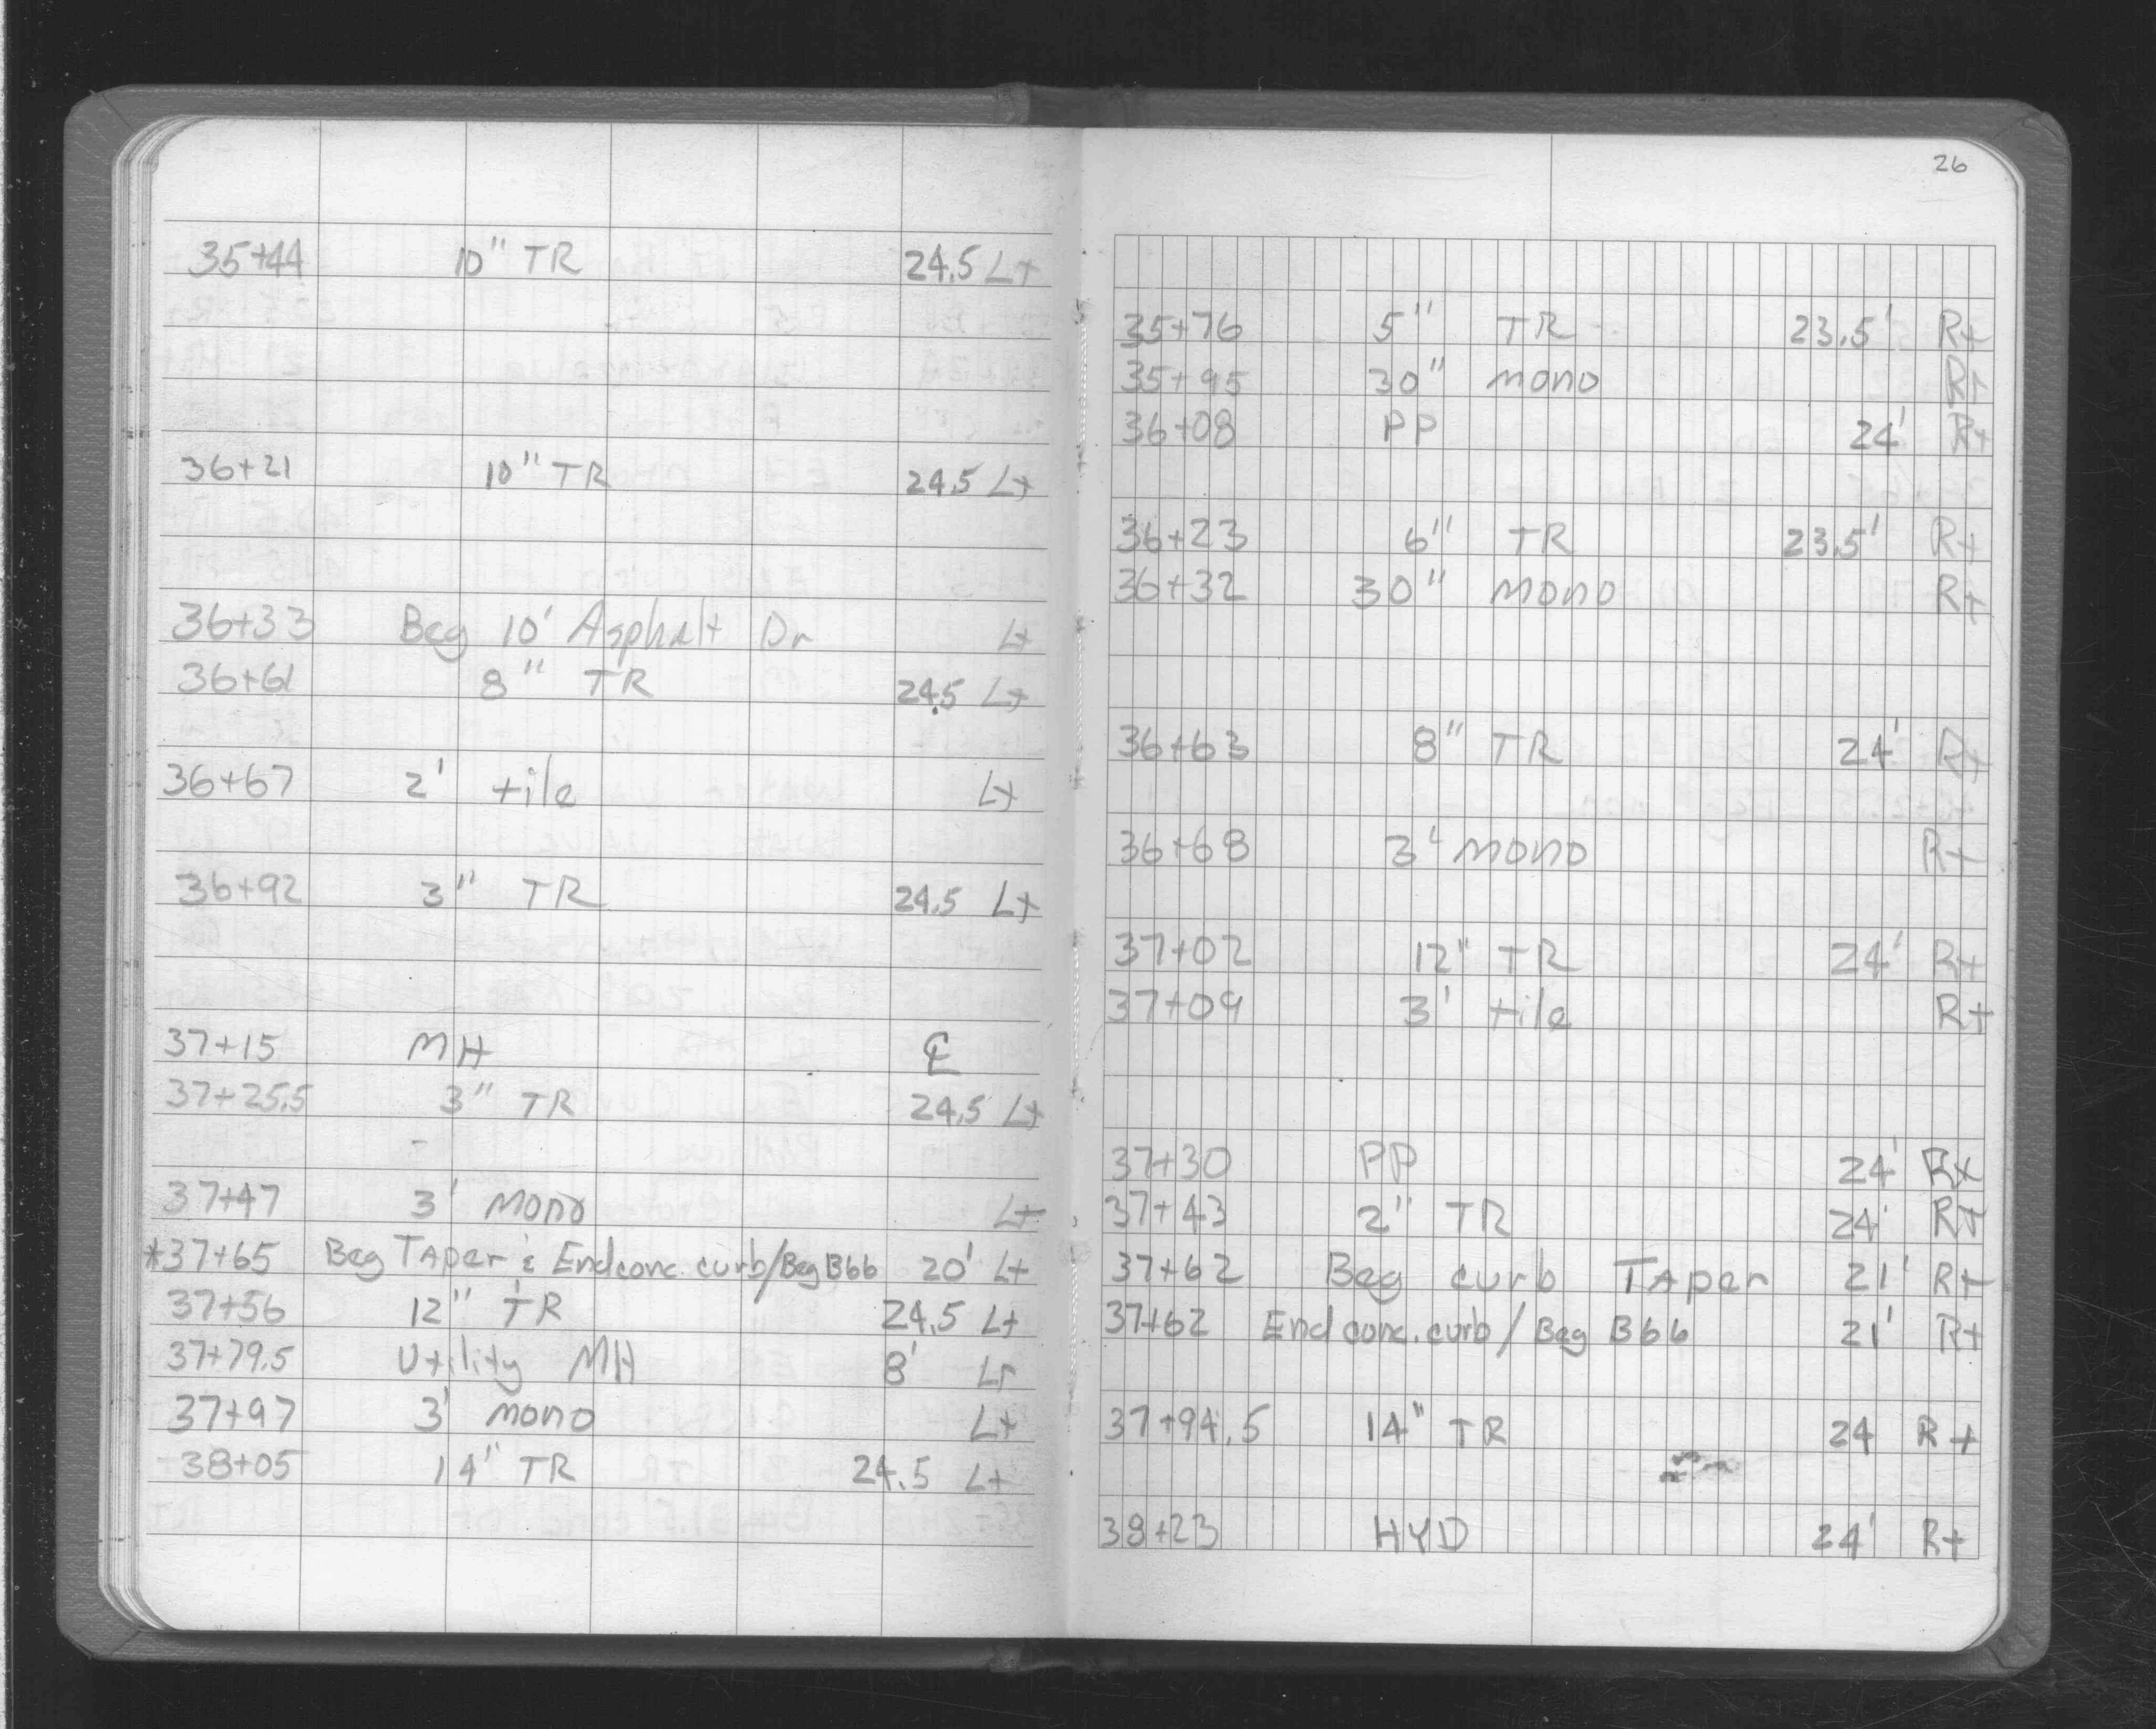 35+44 10" TR 24.5 Lt
36+21 10" TR 24.5 Lt
36+33 Beg 10' Asphalt Dr Lt
36+61 8" TR 24.5 Lt
36+67 2' tile Lt
36+92 3" TR 24.5 Lt
37+15 MH ℄
37+25.5 3" TR 24.5 Lt
37+47 3' Mono Lt
*37+65 Beg TAper & End conc. curb/Beg B66 20' Lt
37+56 12" TR 24.5 Lt
37+79.5 Utility MH 8' Lt
37+97 3' mono Lt
38+05 14" TR 24.5 Lt
26
35+76 5" TR 23.5' Rt
35+95 30" mono Rt
36+08 PP 24' Rt
36+23 6" TR 23.5' Rt
36+32 30" mono Rt
36+63 8" TR 24' Rt
36+68 3' mono Rt
37+02 12" TR 24' Rt
37+09 3' tile Rt
37+30 PP 24' Rt
37+43 2" TR 24' Rt
37+62 Beg curb TAper 21' Rt
37+62 End conc. curb/Beg B66 21' Rt
37+94.5 14" TR 24 Rt
38+23 HYD 24' Rt